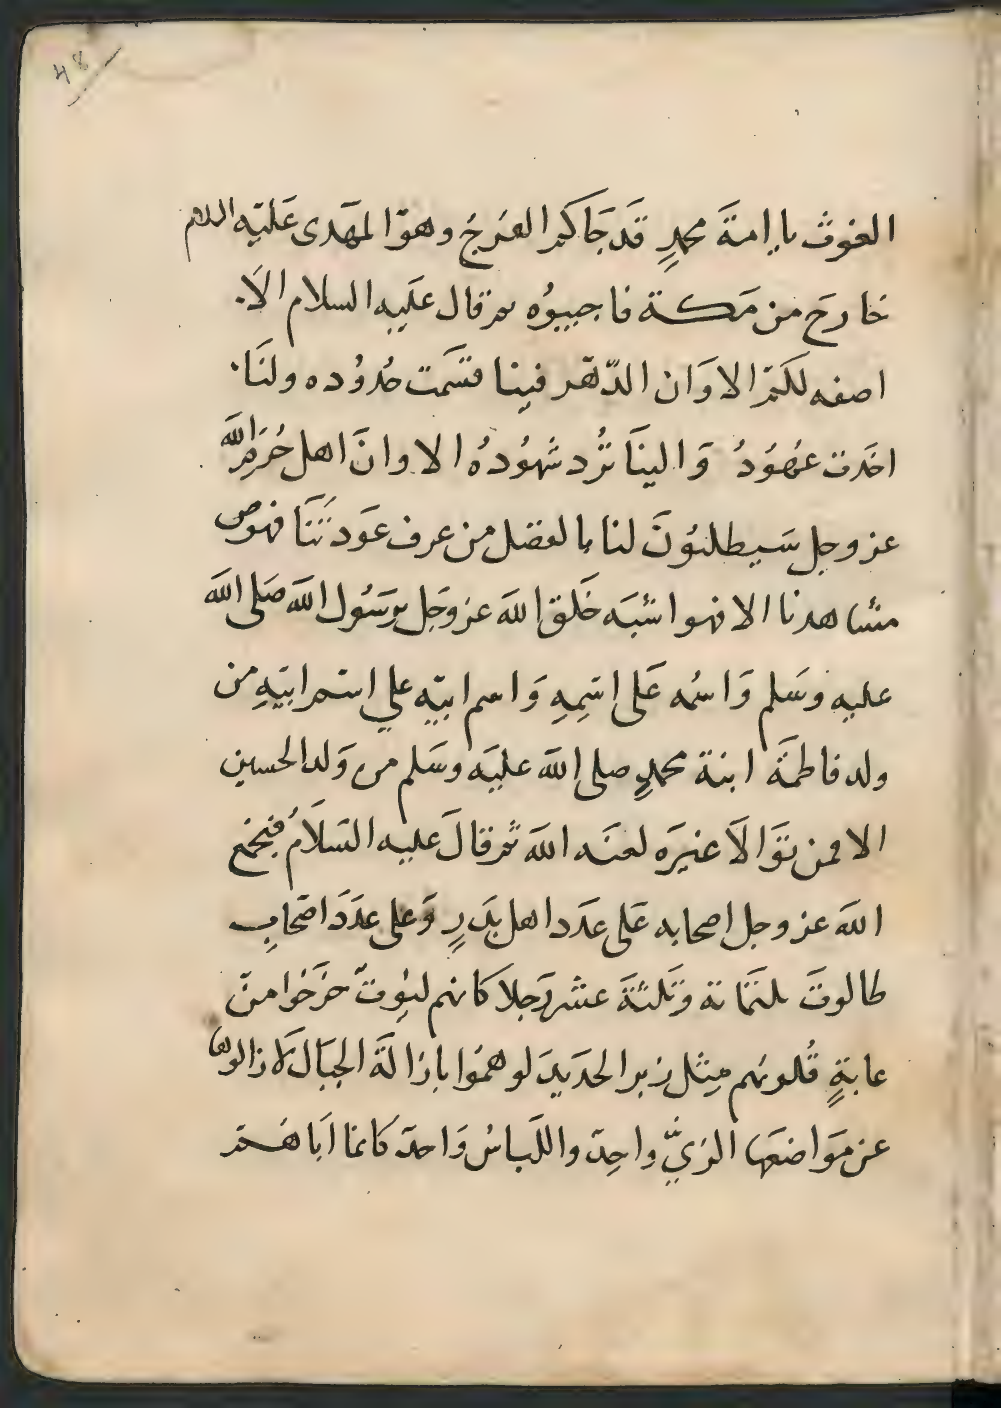 48
الغوث يا امةَ محمدٍ قَد جَاكم الفَرجُ وهوَ المهَدى عَليَه السلام
خارج من مَكـة فاجيبوُه ثم قال عليه السلام الاَ
اصفه لكَم الا وَان الدّهَر فينا قسَمت حُدوُده ولنَا
اخَدت عهُوَدُ وَالينَا تُرد شهُوُدهُ الا وانَ اهل حُرَمِ اللهَ
عز وجل سَيطلبوُنَ لنا بالفضل من عرف عَودتَنَا فهو
مشاهدنا الا فهو اشبَه خَلق اللهَ عز وجَل برسَوُل اللهَ صَلى اللهَ
عليه وسَلم وَاسُمه عَلى اسِمهِ وَاسم ابيَه علي اسَم ابيَهِ من
ولد فاطمَة ابنة محمدٍ صلى اللهَ عليَه وسَلم من وَلد الحسين
الا فمن توَالاَ غيرَه لعنَه اللهَ ثمَ قالَ عليه السَلاَمُ فيجمَع
اللهَ عز وجل اصحابه عَلى عدَد اهل بدَرٍ وَعلى عدَدَ اصَحابِ
طالوتَ ثلثَمَائة وثلثَةَ عشَر رَجلا كانهم ليوُثّ خرَجَوُا منّ
غابةٍ قُلوبهم مِثل زبر الحدَيدَ لو همَوُا بازالةَ الجبَال لاَزالوها
عن مَوَاضعَها الزيُّ واحِدَ واللَباسُ وَاحدَ كانما ابَاهُـم